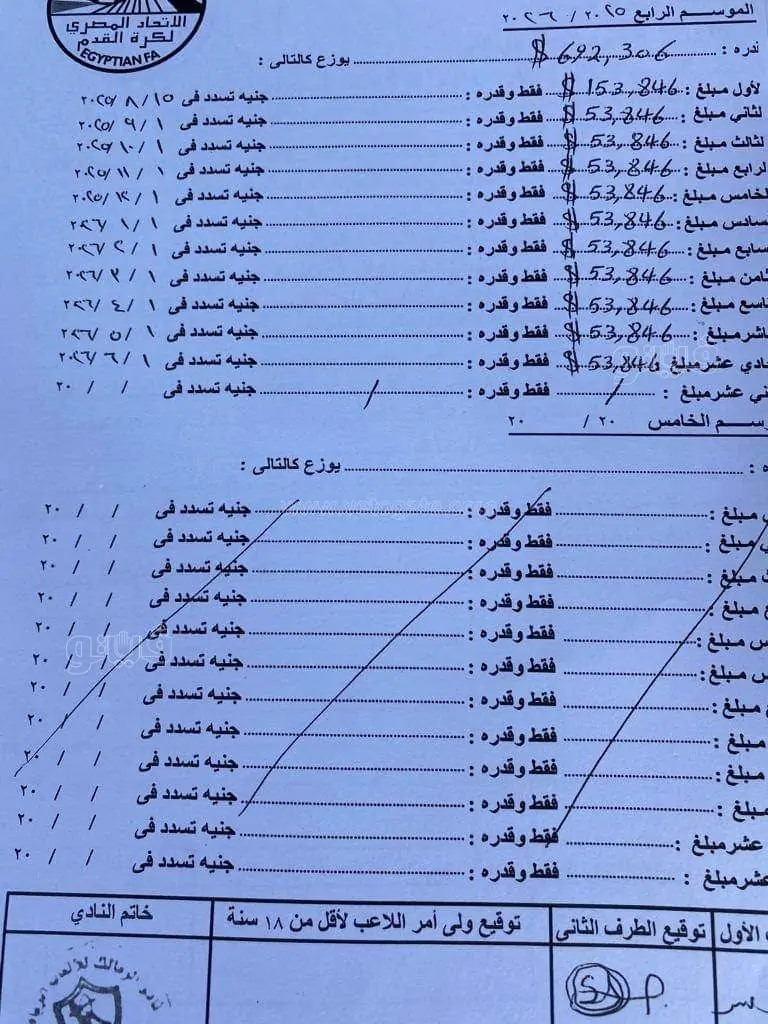 الاتحاد المصري
لكرة القدم
EGYPTIAN FA
الموسم الرابع ٢٠٢٥ / ٢٠٢٦
قدره : $ 692,306 يوزع كالتالى :
لأول مبلغ : $ 153,846 فقط وقدره : جنيه تسدد فى ١٥ / ٨ / ٢٠٢٥
لثاني مبلغ : $ 53,846 فقط وقدره : جنيه تسدد فى ١ / ٩ / ٢٠٢٥
لثالث مبلغ : $ 53,846 فقط وقدره : جنيه تسدد فى ١ / ١٠ / ٢٠٢٥
لرابع مبلغ : $ 53,846 فقط وقدره : جنيه تسدد فى ١ / ١١ / ٢٠٢٥
لخامس مبلغ : $ 53,846 فقط وقدره : جنيه تسدد فى ١ / ١٢ / ٢٠٢٥
سادس مبلغ : $ 53,846 فقط وقدره : جنيه تسدد فى ١ / ١ / ٢٠٢٦
سابع مبلغ : $ 53,846 فقط وقدره : جنيه تسدد فى ١ / ٢ / ٢٠٢٦
ثامن مبلغ : $ 53,846 فقط وقدره : جنيه تسدد فى ١ / ٣ / ٢٠٢٦
تاسع مبلغ : $ 53,846 فقط وقدره : جنيه تسدد فى ١ / ٤ / ٢٠٢٦
اشر مبلغ : $ 53,846 فقط وقدره : جنيه تسدد فى ١ / ٥ / ٢٠٢٦
ادي عشر مبلغ $ 53,846 فقط وقدره : جنيه تسدد فى ١ / ٦ / ٢٠٢٦
ني عشر مبلغ : / فقط وقدره : / جنيه تسدد فى / / ٢٠
وسم الخامس ٢٠ / ٢٠
ه : يوزع كالتالى :
ي مبلغ : فقط وقدره : جنيه تسدد فى / / ٢٠
ي مبلغ : فقط وقدره : جنيه تسدد فى / / ٢٠
ث مبلغ : فقط وقدره : جنيه تسدد فى / / ٢٠
ع مبلغ : فقط وقدره : جنيه تسدد فى / / ٢٠
س مبلغ : فقط وقدره : جنيه تسدد فى / / ٢٠
س مبلغ : فقط وقدره : جنيه تسدد فى / / ٢٠
ع مبلغ : فقط وقدره : جنيه تسدد فى / / ٢٠
مبلغ : فقط وقدره : جنيه تسدد فى / / ٢٠
مبلغ : فقط وقدره : جنيه تسدد فى / / ٢٠
مبلغ : فقط وقدره : جنيه تسدد فى / / ٢٠
عشر مبلغ : فقط وقدره : جنيه تسدد فى / / ٢٠
عشر مبلغ : فقط وقدره : جنيه تسدد فى / / ٢٠
ف الأول توقيع الطرف الثانى توقيع ولى أمر اللاعب لأقل من ١٨ سنة خاتم النادي
نادي الزمالك للألعاب الرياض
ڤيتو